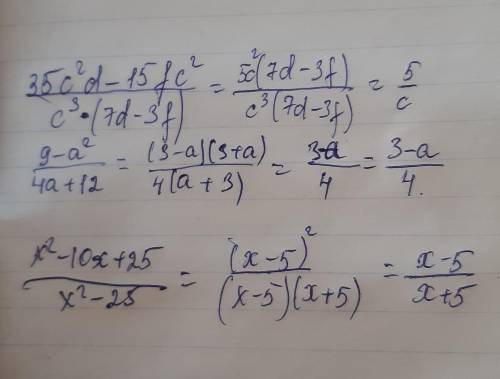 (35c²d-15fc²)/(c³·(7d-3f)) = (5c²(7d-3f))/(c³(7d-3f)) = 5/c
(9-a²)/(4a+12) = ((3-a)(3+a))/(4(a+3)) = (3-a)/4 = (3-a)/4.
(x²-10x+25)/(x²-25) = (x-5)²/((x-5)(x+5)) = (x-5)/(x+5)